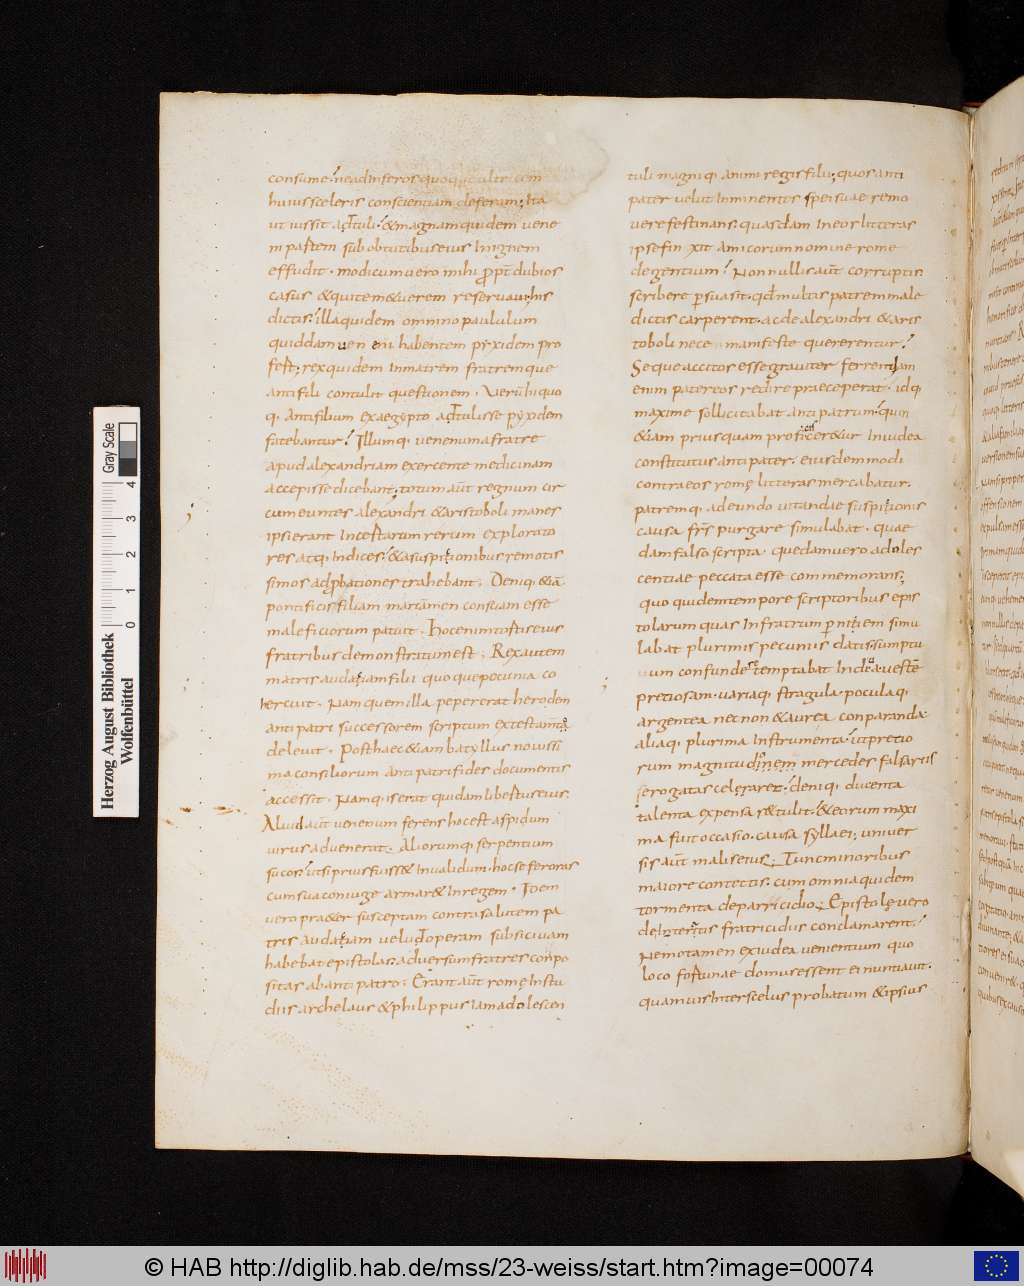 consume. ne ad inferos quoque ultricem
huius sceleris conscientiam deferam; Ita
ut iussit attuli. & magnam quidem vene
ni partem sub obtutibus eius in ignem
effudit. modicum uero mihi propt dubios
casus & qui temeuerem reseruauit; his
dictis. illa quidem omnino paululum
quiddam ueneni habentem pyxidem pro
fert; rex quidem in matrem fratremque
antifili contulit questionem. Verum hi quo
q; antifilium ex aegypto attulisse pyxidem
fatebantur. Illumq; uenenum a fratre
apud alexandriam exercente medicinam
accepisse dicebant; totum aut regnum cir
cumeuntes alexandri & aristoboli manes
ipsi erant incertarum rerum explorato
res atq; indices. & a suspitionibus remotis
simos ad pbationes trahebant; Deniq; &iā
pontificis filiam mariamen consciam esse
maleficiorum patuit. Hoc enim tortis eius
fratribus demonstratum est; Rex autem
matris audatiam filii quoque pecunia co
hercuit. Nam quem illa pepererat heroden
antipatri successorem scriptum ex testamto
deleuit. Post haec &iam batyllus nouissi
ma consiliorum antipatri fides documentis
accessit. Namq; is erat quidam libertus eius.
Aliud aut uenenum ferens hoc est aspidum
uirus aduenerat. Aliorumq; serpentium
sucos. ut si prius fuiss& inualidum. hoc se feroras
cum sua coniuge armar& in regem. Idem
uero praeter susceptam contra salutem pa
tris audatiam velud operam subsiciuam
habebat epistolas. aduersum fratres conpo
sitas ab antipatro; Erant aut rome in stu
diis archelaus & philippus iam adolescen
tuli magniq; animi regis filii; quos anti
pater uelut inminentis spei suae remo
uere festinans. quasdam in eos litteras
ipse finxit amicorum nomine rome
degentium. Nonnullis aūt corruptis
scribere psuasit. qd multis patrem male
dictis carperent. ac de alexandri & aris
toboli nece manifeste quererentur.
Seque accitos esse grauiter ferrent iam
enim pater eos redire praeceperat. idq;
maxime sollicitabat antipatrum. quin
&iam priusquam proficisceretur in iudea
constitutus antipater. eiusdem modi
contra eos rome litteras mercabatur.
patremq; adeundo uitandae suspitionis
causa frs purgare simulabat. quae
dam falso scripta. quedam uero adoles
centiae peccata esse commemorans;
quo quidem tempore scriptoribus epis
tolarum quas in fratrum pnitiem simu
labat plurimis pecuniis datis. sumptu
uum confundere temptabat indicia. uestē
pretiosam. uariaq; stragula. poculaq;
argentea nec non & aurea conparanda.
aliaq; plurima instrumenta. ut pretio
rum magnitudinem mercedes falsariis
erogatas celaret. deniq; ducenta
talenta expensa rettulit. & eorum maxi
ma fuit occasio. causa syllaei; univer
sis aūt malis eius; Tunc minoribus
maiore contectis. cum omnia quidem
tormenta de parricidio; Epistole uero
de interitis fratricidiis conclamarent.
Nemo tamen ex iudea uenientium quo
loco fortunae domus essent ei nuntiauit.
quamuis inter scelus probatum & ipsius
Gray Scale
Herzog August Bibliothek
Wolfenbüttel
0 1 2 3 4
© HAB http://diglib.hab.de/mss/23-weiss/start.htm?image=00074